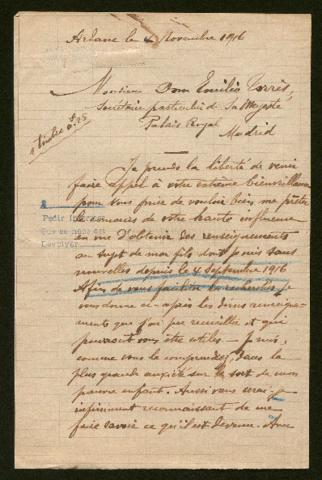 le 4 Novembre 1916
Monsieur Dom Emilio Torrès,
Secrétaire particulier de Sa Majesté
Palais Royal
Madrid
1 timbre 0f25
Je prends la liberté de venir
faire appel à votre extrême bienveillance
pour vous prier de vouloir bien me prêter
le concours de votre haute influence
en vue d'obtenir des renseignements
au sujet de mon fils dont je suis sans
nouvelles depuis le 4 Septembre 1916
Pedir
Afin de vous faciliter les recherches je
vous donne ci-après les divers renseigne-
ments que j'ai pu recueillir et qui
pourraient vous être utiles - Je suis,
comme vous le comprendrez, dans la
plus grande anxiété sur le sort de mon
pauvre enfant. Aussi vous serai-je
infiniment reconnaissant de me
faire savoir ce qu'il est devenu. Avec